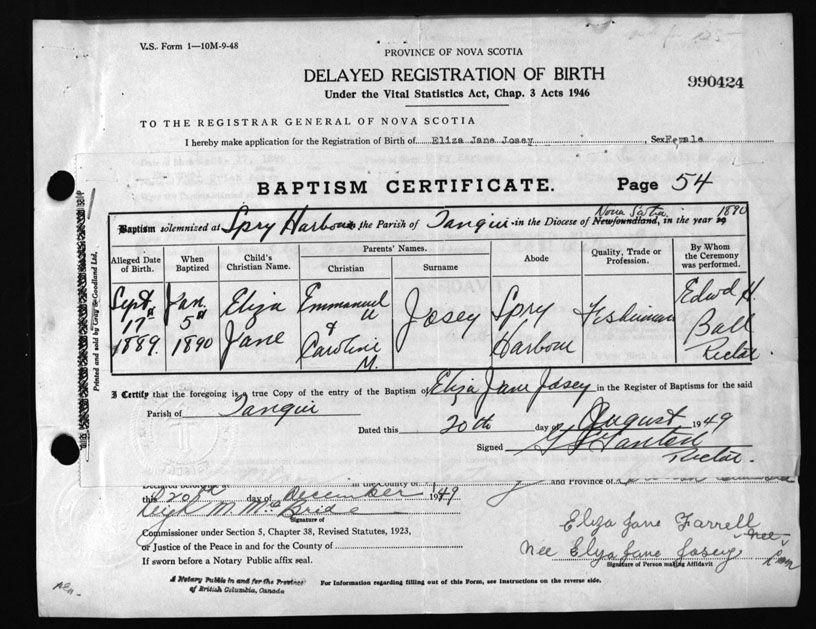 V.S. Form 1—10M-9-48
PROVINCE OF NOVA SCOTIA
DELAYED REGISTRATION OF BIRTH
990424
Under the Vital Statistics Act, Chap. 3 Acts 1946
TO THE REGISTRAR GENERAL OF NOVA SCOTIA
I hereby make application for the Registration of Birth of Eliza Jane Josey Sex Female
BAPTISM CERTIFICATE. Page 54
Baptism solemnized at Spry Harbour, the Parish of Tangier in the Diocese of Newfoundland, Nova Scotia in the year 1890
Alleged Date of Birth.
When Baptized
Child's Christian Name.
Parents' Names.
Christian
Surname
Abode
Quality, Trade or Profession.
By Whom the Ceremony was performed.
Sept. 17th 1889.
Jan. 5th 1890
Eliza Jane
Emmanuel & Caroline M.
Josey
Spry Harbour
Fisherman
Edwd H. Ball Rector.
Printed and sold by Gray & Goodland Ltd,
I Certify that the foregoing is a true Copy of the entry of the Baptism of Eliza Jane Josey in the Register of Baptisms for the said
Parish of Tangier
Dated this 20th day of August 1949
Signed
Rector.
in the County of and Province of
this 20th day of December 1949
Leigh M. McBride
Signature of
Commissioner under Section 5, Chapter 38, Revised Statutes, 1923,
or Justice of the Peace in and for the County of
If sworn before a Notary Public affix seal.
Eliza Jane Farrell
nee
nee Eliza Jane Josey
Signature of Person making Affidavit
A Notary Public in and for the Province
of British Columbia, Canada
For Information regarding filling out of this Form, see instructions on the reverse side.